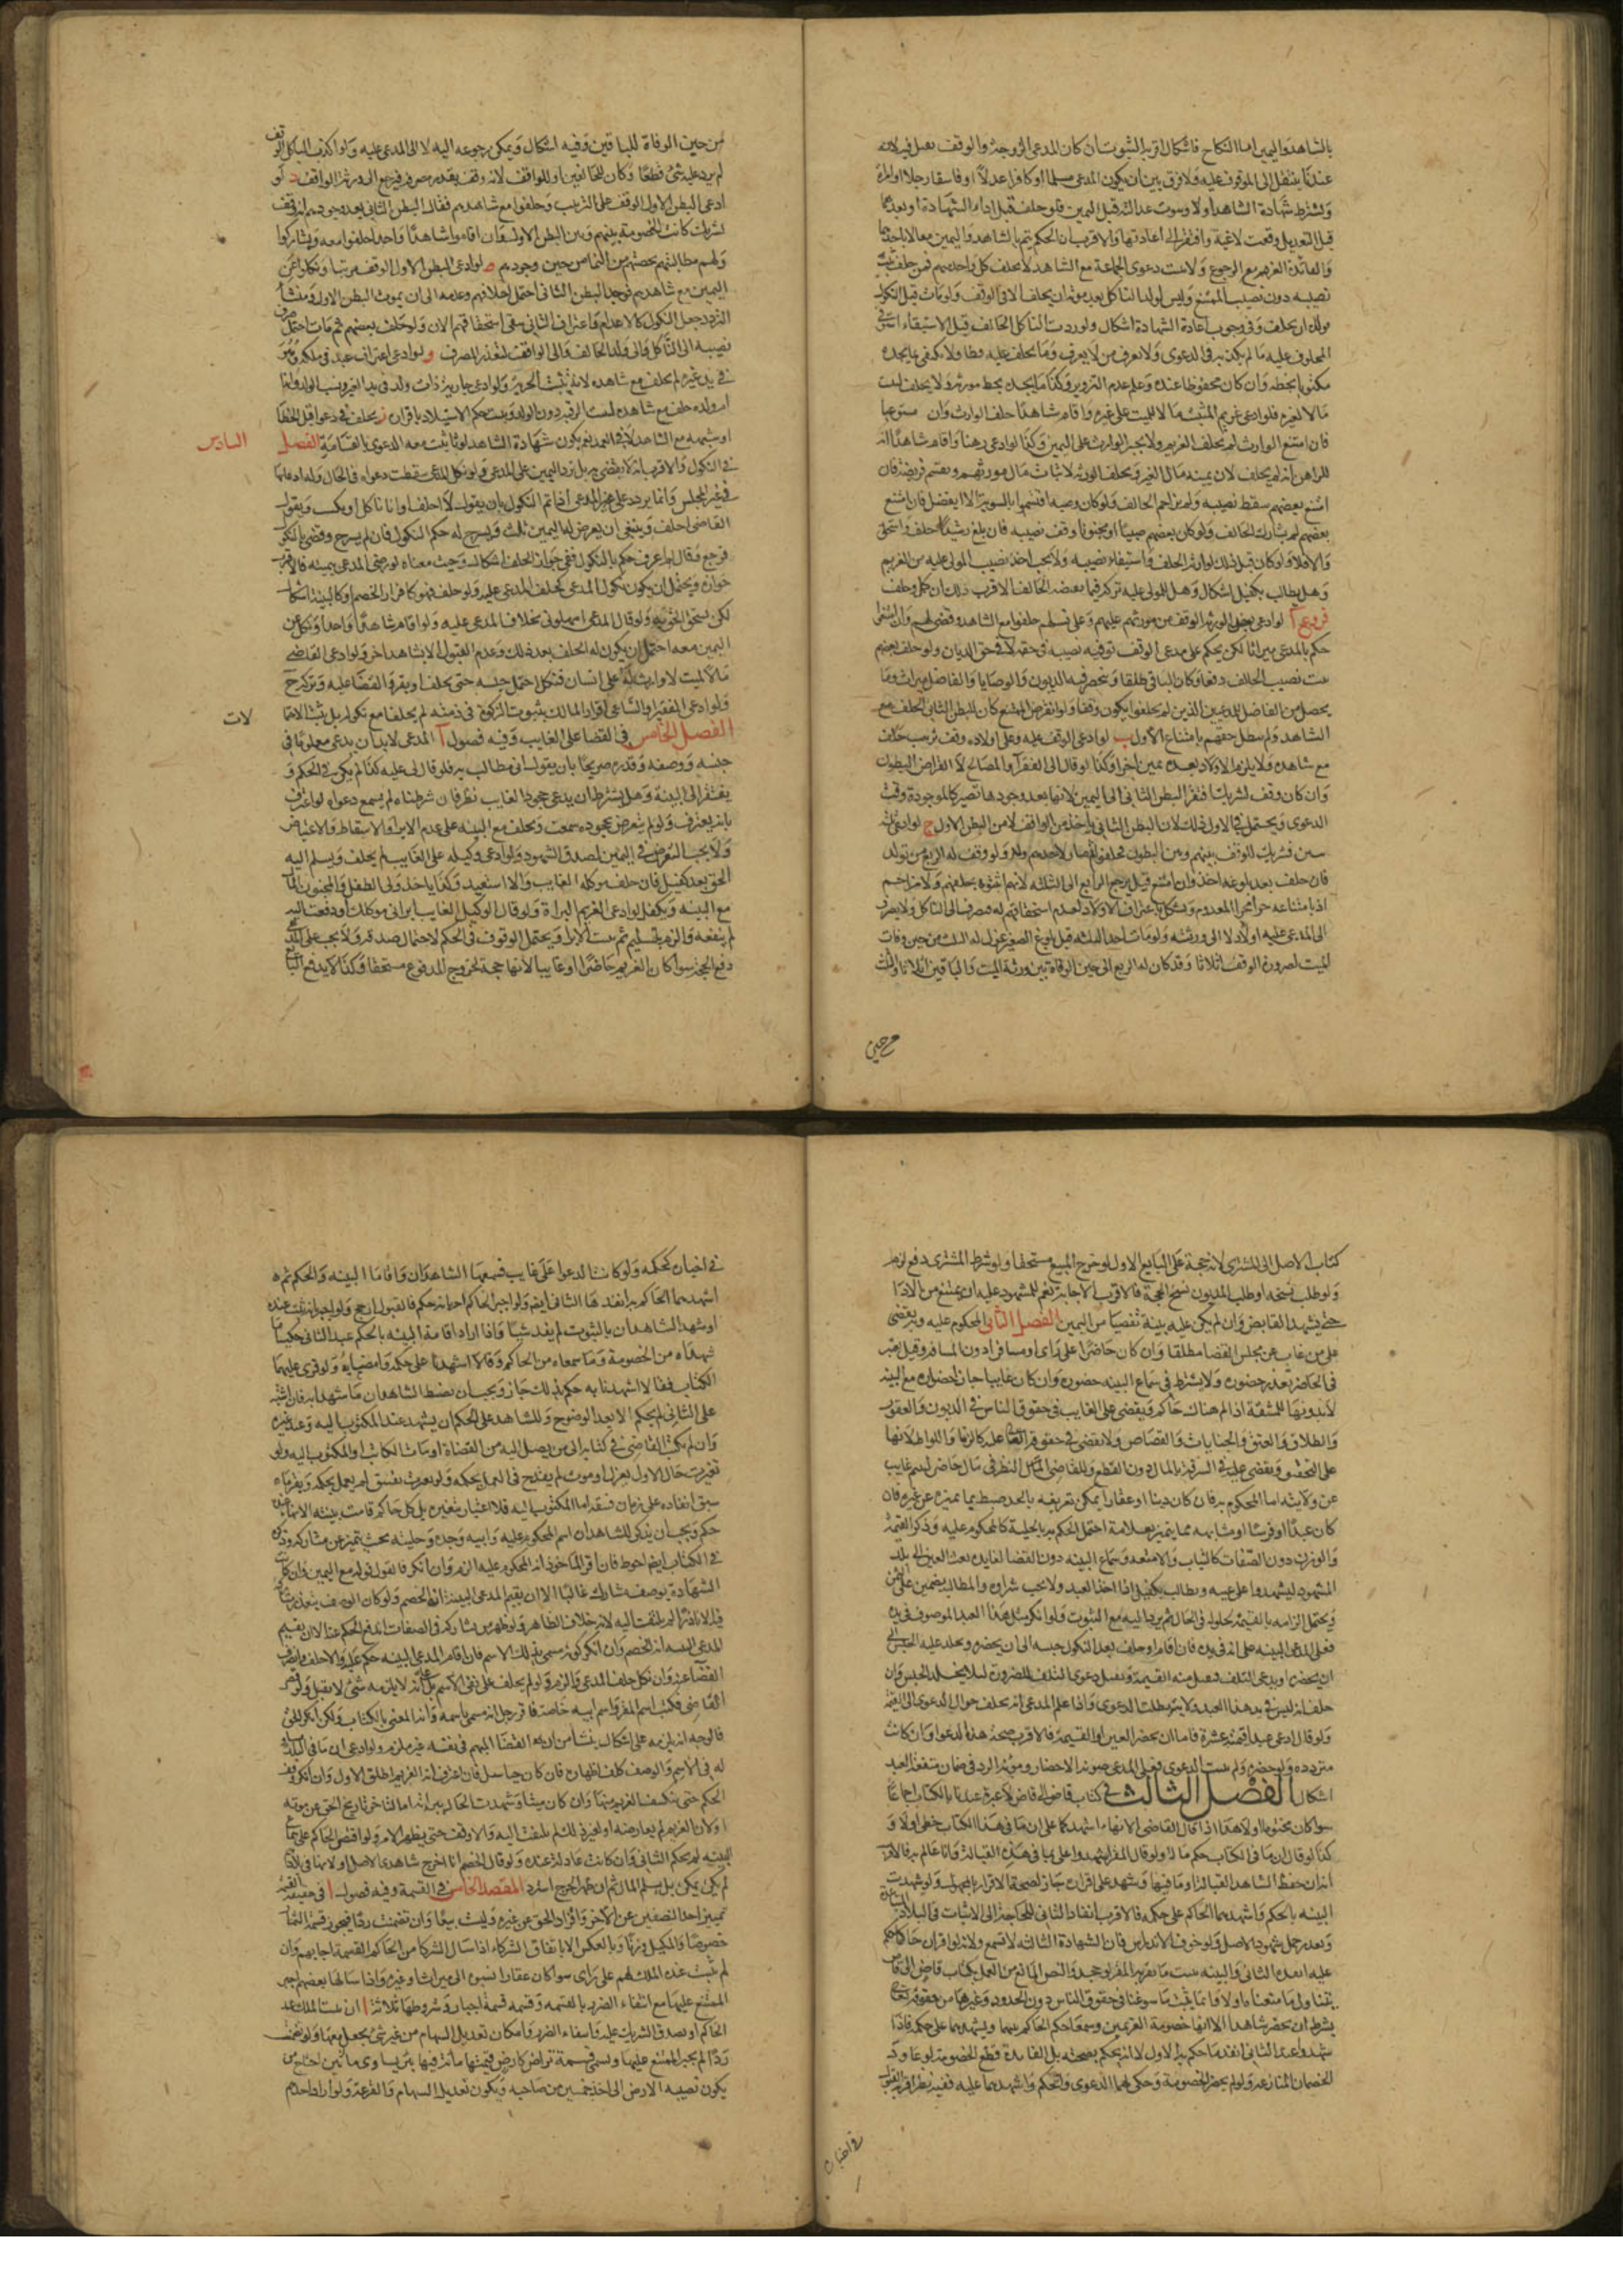 بالشاهد واليمين اما النكاح فاشكال اقربه الثبوت ان كان المدعى الزوجة والوقف يقبل فيه لانه
عندنا ينتقل الى الموقوف عليه ولا فرق بين ان يكون المدعى مسلما او كافرا عدلا او فاسقا رجلا او امراة
ويشترط شهادة الشاهد اولا وثبوت عدالته قبل اليمين فلو حلف قبل اداء الشهادة او بعدها
قبل التعديل وقعت لاغية وافتقر الى اعادتها والاقرب ان الحكم يتم بالشاهد واليمين معا لا باحدهما
والفائدة الغرم مع الرجوع ولا يثبت دعوى الجماعة مع الشاهد الا بحلف كل واحد منهم فمن حلف ثبت
نصيبه دون نصيب الممتنع وليس لولد الناكل بعد موته ان يحلف الا فى الوقف ولو مات قبل النكول
فلولده ان يحلف وفى وجوب اعادة الشهادة اشكال ولو وردت
المحلوف عليه ما لم يكذبه فى الدعوى ولا يعرف من لا يعرف وما يحلف عليه قطعا ولا يكفى ما يجده
مكتوبا بخطه وان كان محفوظا عنده وعلم عدم التزوير وكذا ما يجده بخط مورثه ولا يحلف ليثبت
مالا لغيره فلو ادعى غريم الميت مالا للميت على غيره واقام شاهدا حلف الوارث وان
فان امتنع الوارث لم يحلف الغريم ولا يجبر الوارث على اليمين وكذا لو ادعى رهنا واقام شاهدا انه
للراهن لم يحلف لان يمينه مال الغير ويحلف الورثة لاثبات مال مورثهم ويقسم فريضة فان
امتنع بعضهم سقط نصيبه ولم يزاحم الحالف ولو كان وصية اقتسموا بالسوية الا ان يفضل فان امتنع
بعضهم لم يشارك الحالف ولو كان بعضهم صبيا او مجنونا وقف نصيبه فان بلغ رشيدا حلف واستحق
والا فلا ولو كان قبل ذلك لوارثه الحلف واستيفاء نصيبه ولا يجب اخذ نصيب المولى عليه من الغريم
وهل يطالب بكفيل اشكال وهل للمولى عليه شركة فيما يقبضه الحالف الاقرب ذلك ان كمل وحلف
فروع ا لو ادعى بعض الورثة الوقف من مورثهم عليهم وعلى نسلهم حلفوا مع الشاهد وقضى لهم وان امتنعوا
حكم بالمدعى ميراثا لكن يحكم على مدعى الوقف توقيفه نصيبه فى حقه لا فى حق الديان ولو حلف بعضهم
ثبت نصيب الحالف وقفا وكان الباقى طلقا وينحصر فيه الديون والوصايا والفاضل ميراث وما
يحصل من الفاضل للمدعين الذين لم يحلفوا يكون وقفا ولو انقرض الممتنع كان للبطن الثانى الحلف مع
الشاهد ولم يبطل حقهم بامتناع الاول ب لو ادعى الوقف عليه وعلى اولاده وقف ترتيب حلف
مع شاهده ولا يلزم الاولاد بعده يمين اخرى وكذا لو قال الى الفقراء او المصالح لا انقراض البطون
وان كان وقف تشريك افتقر البطن الثانى الى اليمين لانها بعد وجودها تصير كالموجودة وقت
الدعوى ويحتمل فى الاول ذلك لان البطن الثانى ياخذ من الواقف لا من البطن الاول ج لو ادعى ثلثة
بنين تشريك الوقف بينهم وبين البطون فحلفوا ثم صار لاحدهم ولد وقف له الربع من تولد
فان حلف بعد بلوغه اخذ وان امتنع قيل يرجع الرابع الى الثلثة لانهم اثبتوه بحلفهم ولا مزاحم
اذ بامتناعه جرى مجرى المعدوم ويشكل باعتراف الاولاد لعدم استحقاقهم له فيصرف الى الناكل ولا يصرف
الى المدعى عليه او لا ولا الى ورثته ولو مات احد الثلثة قبل بلوغ الصغير عزل له الثلث من حين وفات
الميت لصيرورة الوقف اثلاثا وقد كان له الربع الى حين الوفاة بين ورثة الميت والباقين اثلاثا والثلث
من حين
من حين الوفاة للباقين وفيه اشكال ويمكن رجوعه اليه لا الى المدعى عليه ولو اكذب الناكل الوقف
لم يرد عليه شئ قطعا وكان للحالفين او للواقف لانه وقف تعذر مصرفه فيرجع الى ورثة الواقف د لو
ادعى البطن الاول الوقف على الترتيب وحلفوا مع شاهدهم فقال البطن الثانى بعد وجودهم انه وقف
تشريك كانت الخصومة بينهم وبين البطن الاول فان اقاموا شاهدا واحدا حلفوا معه وتشاركوا
ولهم مطالبتهم بحصتهم من النماء من حين وجودهم ه لو ادعى البطن الاول الوقف مرتبا ونكلوا عن
اليمين مع شاهدهم فوجد البطن الثانى احتمل احلافهم وعدمه الى ان يموت البطن الاول ومنشا
التردد جعل النكول كالاعدام واعتراف الثانى بنفى استحقاقهم الان ولو حلف بعضهم ثم مات احتمل صرف
نصيبه الى الناكل والى ولد الحالف والى الواقف لتعذر المصرف و لو ادعى اعتراف عبد فى ملكه وهو
فى يد غيره لم يحلف مع شاهده لانه يثبت الحرية ولو ادعى جارية ذات ولد فى يد الغير ونسب الولد وانها
ام ولده حلف مع شاهده ليثبت الرقية دون الولد ويثبت حكم الاستيلاد باقراره ز يحلف فى دعوى قتل الخطا
او شبهه مع الشاهد لا فى العمد نعم يكون شهادة الشاهد لوثا يثبت معه الدعوى بالقسامة الفصل السادس
فى النكول والاقرب انه لا يقضى به بل ترد اليمين على المدعى ولو نكل المدعى سقطت دعواه فى الحال وله ادعاؤها
فى غير المجلس وانما يرد على المدعى اذا تم النكول بان يقول لا احلف او انا ناكل او يسكت ويقول
القاضى احلف وينبغى ان يعرض له اليمين ثلث ويشرح له حكم النكول فان لم يشرح وقضى بالنكول
فرجع وقال لم اعرف حكم النكول ففى جواز الحلف اشكال وحيث منعناه لو رضى المدعى بيمينه فالاقرب
جوازه ويحتمل ان يكون نكول المدعى كحلف المدعى عليه ولو حلف فهو كاقرار الخصم او كالبينة اشكال
لكن يستحق الحق به ولو قال المدعى امهلونى بخلاف المدعى عليه ولو اقام شاهدا واحدا ونكل عن
اليمين معه احتمل ان يكون له الحلف بعد ذلك وعدم القبول الا بشاهد اخر ولو ادعى القاضى
مالا لميت لا وارث له على انسان فنكل احتمل حبسه حتى يحلف او يقر والقضاء عليه وتركه
ولو ادعى الفقير او الساعى اقرار المالك بثبوت الزكوة فى ذمته لم يحلفا مع نكوله بل يثبت الاتها
لات
الفصل الخامس فى القضا على الغايب وفيه فصول ا المدعى لا بد ان يدعى معلوما فى
جنسه ووصفه وقدره صريحا بان يقول انى مطالب به فلو قال لى عليه كذا لم يكن فى الحكم و
يفتقر الى البينة وهل يشترط ان يدعى جحود الغايب نظر فان شرطناه لم يسمع دعواه لو اعترف
بانه يعترف ولو لم يتعرض بجحوده سمعت ويحلف مع البينة على عدم الابراء والاستقاط والاعتياض
ولا يجب التعرض فى اليمين لصدق الشهود ولو ادعى وكيله على الغايب لم يحلف ويسلم اليه
الحق بعد كفيل فان حلف موكله الغايب والا استعيد وكذا ياخذ ولى الطفل والمجنون المال
مع البينة ويكفل لو ادعى الغريم البراءة ولو قال لوكيل الغايب ابرانى موكلك او دفعت اليه
لم ينفعه والزم بالتسليم ثم يثبت الابراء ويحتمل الوقوف فى الحكم لاحتمال صدقه ولا يجب على المدعى
دفع الحجة سواء كان الغريم حاضرا او غايبا لانها حجة لخروج المدفوع مستحقا وكذا لا يدفع البايع
كتاب الاصل الى المشترى لانه حجة على البايع الاول لو خرج المبيع مستحقا ولو شرط المشترى دفع لزم
ولو طلب نسخه او طلب المديون نسخ الحجة فالاقرب الاجابة نعم للمشهود عليه ان يمتنع من الاداء
حتى يشهد القابض وان لم يكن عليه بينة تفصيا من اليمين الفصل الثانى المحكوم عليه ويقضى
على من غاب عن مجلس القضا مطلقا وان كان حاضرا على راى او مسافرا دون المسافة وقيل يعتبر
فى الحاضر تعذر حضوره ولا يشترط فى سماع البينة حضوره وان كان غايبا جاز احضاره مع البينة
لا بدونها للمشقة اذا لم هناك حاكم ويقضى على الغايب فى حقوق الناس فى الديون والعقود
والطلاق والعتق والجنايات والقصاص ولا يقضى فى حقوقه تعالى عليه كالزنا واللواط لانها
على التخفيف ويقضى عليه فى السرقة بالمال دون القطع وللقاضى النظر فى مال حاضر ليتيم غايب
عن ولايته اما المحكوم به فان كان دينا او عقارا يمكن تعريفه بالحد ضبط بما يميزه عن غيره فان
كان عبدا او فرسا او مشابهه مما يتميز بعلامة احتمل الحكم به بالحلية كالمحكوم عليه وذكر القيمة
والوزن دون الصفات كالثياب والامتعة وسماع البينة دون القضا لفايدة بعث العين الى بلد
الشهود ليشهدوا على عينه ويطالب بكفيل اذا اخذ العبد ولا يجب شراؤه والمطالبة بضمين على الثمن
ويحتمل الزامه بالقيمة للحيلولة فى الحال ثم يرد اليه مع الثبوت ولو انكر مثل هذا العبد الموصوف فى يده
فعلى المدعى البينة على انه فى يده فان اقام او حلف بعد النكول حبسه الى ان يحضره ويخلد عليه الحبس الى
ان يحضر او يدعى التلف فيقبل منه القيمة ويقبل دعوى التلف للضرورة لئلا يخلد الحبس وان
حلف انه ليس فى يده هذا العبد ولا بينة بطلت الدعوى واذا علم المدعى انه يحلف حول الدعوى الى القيمة
ولو قال ادعى عبدا قيمته عشرة فاما ان يحضر العين او القيمة فالاقرب صحة هذه الدعوى وان كانت
مترددة ولو احضره ولم يثبت الدعوى فعلى المدعى مؤنة الاحضار ومؤنة الرد وفى ضمان منفعة العبد
اشكال الفصل الثالث فى كتاب قاض الى قاض لا عبرة عندنا بالكتاب اجماعا
سواء كان مختوما او لا وهذا اذا قال القاضى للانهاء اشهدكما على ان ما فى هذا الكتاب خطى او لا و
كذا لو قال ان ما فى الكتاب حكمى ما لا ولو قال المقر اشهدوا على بما فى هذه القبالة وانا عالم به فالاقرب
انه ان حفظ الشاهد القبالة وما فيها وشهد على اقراره جاز لصحة الاقرار بالمجهول ولو شهدت
البينة بالحكم واشهدهما الحاكم على حكمه فالاقرب انفاذ الثانى للحاجة الى الاثبات فى البلاد
وتعذر حمل شهود الاصل ولو خوف الاندراس فان الشهادة الثالثة لا تسمع ولانه لو اقر ان حاكما حكم
عليه انفذه الثانى والبينة يثبت ما يقر به المقر لو جحد والنص المانع من العمل بكتاب قاض الى قاض
يتناول ما منعناه اولا وانما يثبت ما سوغناه فى حقوق الناس دون الحدود وغيرها من حقوقه تعالى
بشرط ان يحضر شاهدا الانهاء خصومة الغريمين وسمعا حكم الحاكم بينهما ويشهدهما على حكمه فاذا
شهدا عند الثانى انفذ ما حكم به الاول لا انه يحكم بصحته بل الفايدة قطع الخصومة لو عاود
الخصمان المنازعة ولو لم يحضرا الخصومة وحكى لهما الدعوى والحكم واشهدهما عليه ففيه نظر اقربه القبول
فى اخباره
فى اخباره كحكمه ولو كانت الدعوى على غايب فسمعها الشاهدان واقاما البينة والحكم ثم
اشهدهما الحاكم به انفذها الثانى ايضا ولو اخبر الحاكم اخرانه حكم فالقبول ارجح ولو اخبر انه ثبت عنده
او شهد الشاهدان بالثبوت لم يفد شيئا واذا اراد اقامة البينة بالحكم عند الثانى حكيا ما
شهداه من الخصومة وما سمعاه من الحاكم وقالا اشهدنا على حكمه وامضائه ولو قرئ عليهما
الكتاب فقالا اشهدنا به حكم بذلك جاز ويجب ان يضبط الشاهدان ما شهدا به فان اشتبه
على الثانى لم يحكم الا بعد الوضوح وللشاهد على الحكم ان يشهد عند المكتوب اليه وعند غيره
وان لم يكتب القاضى فى كتابه الى من يصل اليه من القضاة او مات الكاتب او المكتوب اليه ولو
تغيرت حال الاول بعزل او موت لم يقدح فى العمل بحكمه ولو تغيرت بفسق لم يعمل بحكمه ويقر ما
سبق انفاذه على زمان فسقه اما المكتوب اليه فلا اعتبار بتغيره بل كل حاكم قامت بينة الانهاء
حكم ويجب ان يذكر الشاهدان اسم المحكوم عليه وابيه وجده وحليته بحيث يتميز عن مشاركه وذكره
فى الكتاب ايضا احوط فان اقر الماخوذ انه المحكوم عليه الزم وان انكر فالقول قوله مع اليمين ان كانت
الشهادة بوصف مشارك غالبا الا ان يقيم المدعى البينة انه الخصم ولو كان الوصف يتعذر مشاركته
فيه الا نادرا لم يلتفت اليه لانه خلاف الظاهر ولو ظهر من يشاركه فى الصفات اندفع الحكم عنه الا ان يقيم
المدعى البينة انه الخصم وان انكر كونه مسمى بذلك الاسم فان اقام المدعى البينة حكم عليه والا حلف وانصرف
القضاء عنه وان نكل حلف المدعى والزم ولو لم يحلف على نفى الاسم بل على انه لا يلزمه شئ لا يقبل ولو قصر
القاضى فكتب اسم المقر واسم ابيه خاصة فاقر رجل انه مسمى باسمه وانه المعنى بالكتاب ولكن انكر الحق
فالوجه انه يلزمه على اشكال ينشا من ان هذا القضا المبهم فى نفسه غير ملزم ولو ادعى ان ما فى البلد مشارك
له فى الاسم والوصف كلف اظهاره فان كان حيا سئل فان اعترف انه الغريم اطلق الاول وان انكر وقف
الحكم حتى ينكشف الغريم منهما وان كان ميتا وشهدت الحال ببراته اما لتاخر تاريخ الحق عن موته
او لان الغريم لم يعاصره او لغير ذلك لم يلتفت اليه والا وقف حتى يظهر الامر ولو اقتص الحاكم على سماع
البينة لم يحكم الثانى وان كانت عادلة عنده ولو قال الخصم انا اجرح شاهدى الاصل او لانهاء فان
لم يكن يمكن بل يسلم المال ثم ان ظهر الجرح استرد المقصد الخامس فى القسمة وفيه فصول ا فى حقيقة القسمة
تمييز احد النصفين عن الاخر وافراز الحق عن غيره وليست بيعا وان تضمنت ردا فيجوز قسمة الثمار
خصوصا والمكيل وزنا وبالعكس الا باتفاق الشركاء اذا سال الشركا من الحاكم القسمة اجابهم وان
لم يثبت عنده الملك لهم على راى سوا كان عقارا نسبوه الى ميراث او غيره واذا سالها بعضهم اجبر
الممتنع عليها مع انتفاء الضرر بالقسمة وقسمه قسمة اجبار وشروطها ثلاثة ا ان يثبت الملك عند
الحاكم او يصدق الشريك عليه وانتفاء الضرر وامكان تعديل السهام من غير شئ يجعل معها ولو تضمنت
ردا لم يجبر الممتنع عليها وتسمى قسمة تراض كارض قيمتها مائة فيها بئر يساوى مائتين احتاج من
يكون نصيبه الارض الى اخذ خمسين من صاحبه ويكون تعديل السهام والقرعة ولو اراد احدهم